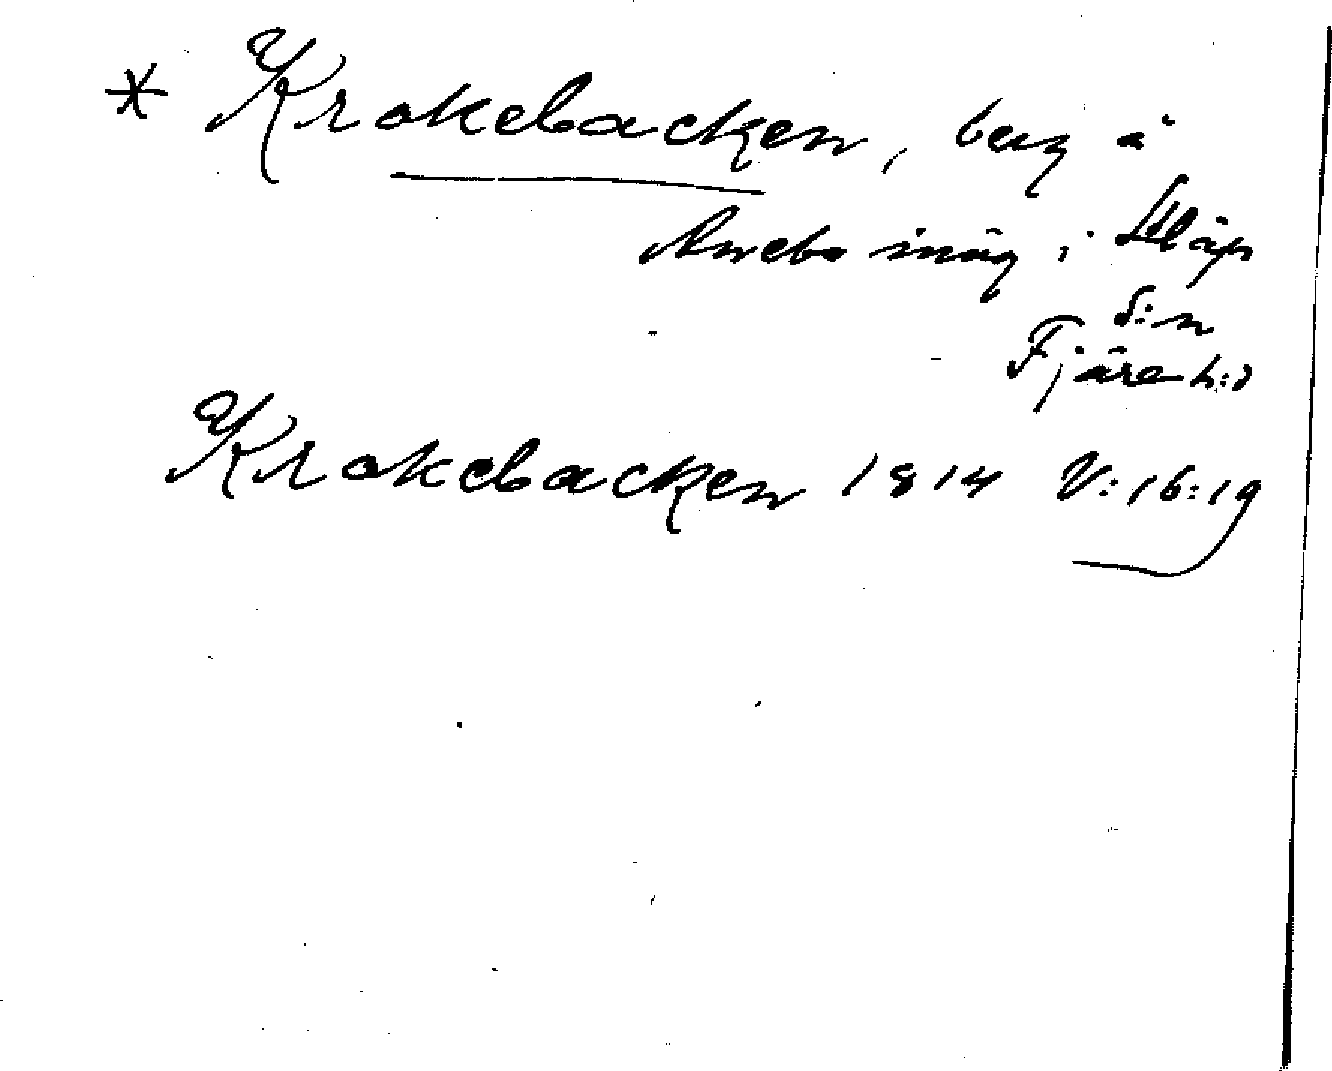 * Krokebacken, berg å
Anebo inäg i Släp
s:n
Fjäre h:d
Krokebacken 1814 V:16:19